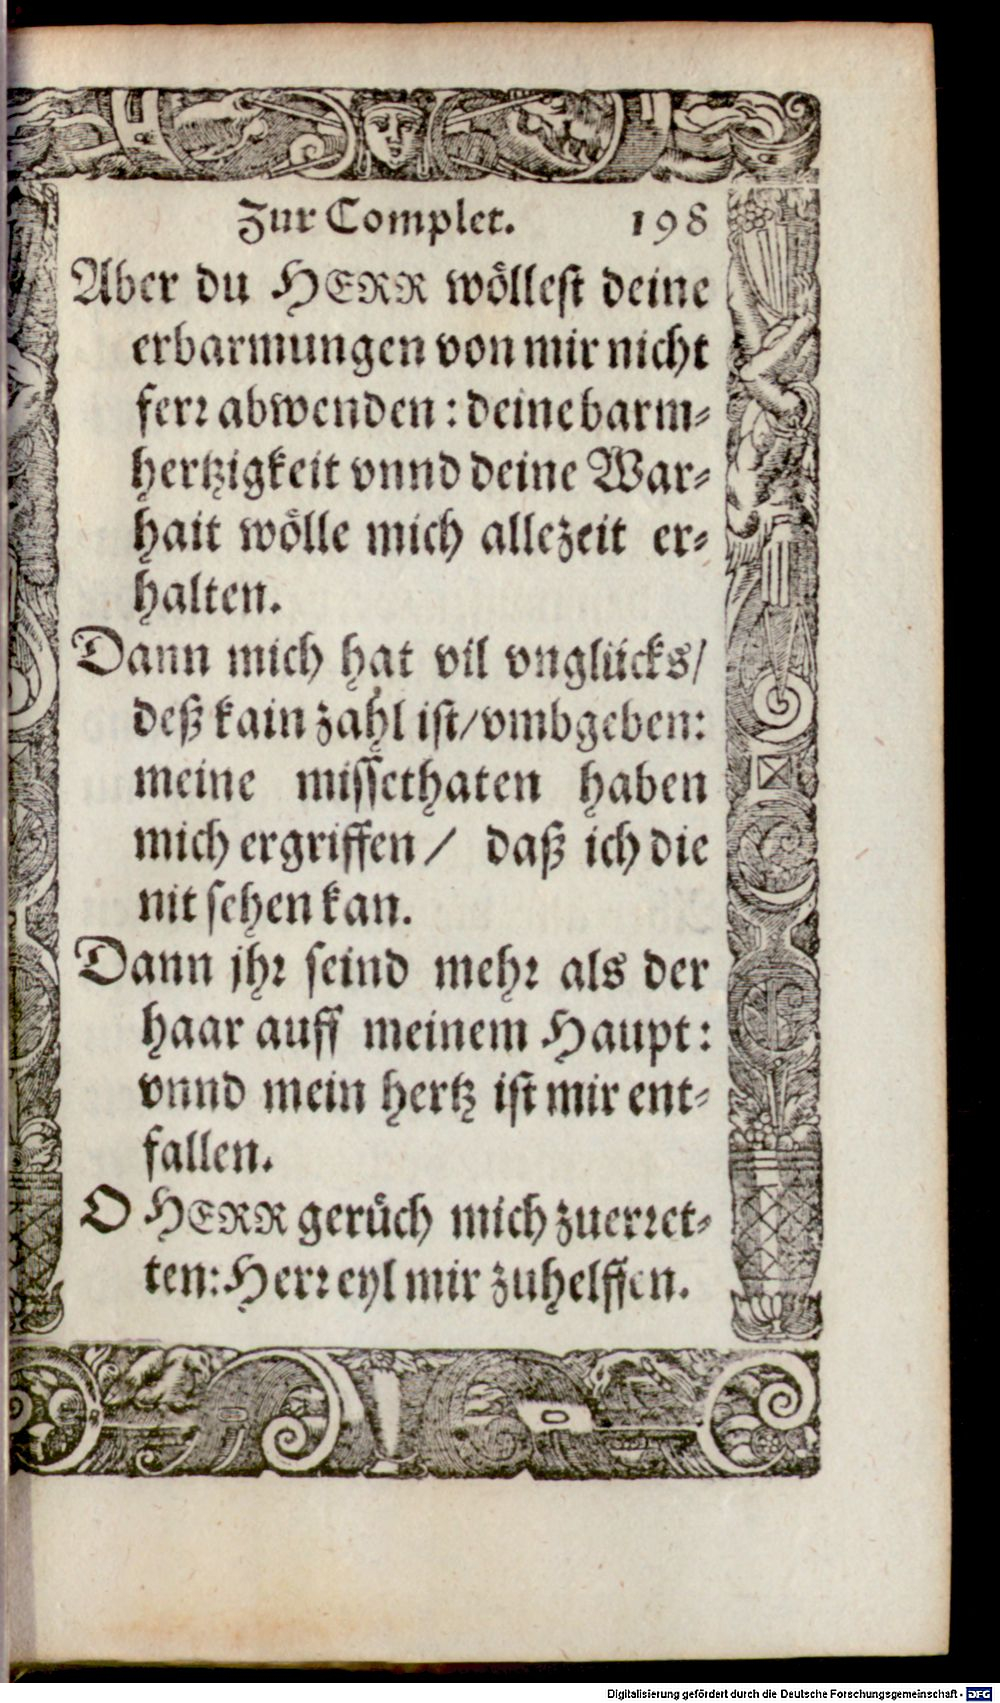 Zur Complet. 198
Aber du HERR wöllest deine
erbarmungen von mir nicht
ferr abwenden: deine barm-
hertzigkeit vnnd deine War-
hait wölle mich allezeit er-
halten.
Dann mich hat vil vnglücks/
deß kain zahl ist/vmbgeben:
meine missethaten haben
mich ergriffen/ daß ich die
nit sehen kan.
Dann jhr seind mehr als der
haar auff meinem Haupt:
vnnd mein hertz ist mir ent-
fallen.
O HERR gerůch mich zuerret-
ten: Herr eyl mir zuhelffen.
Digitalisierung gefördert durch die Deutsche Forschungsgemeinschaft - DFG